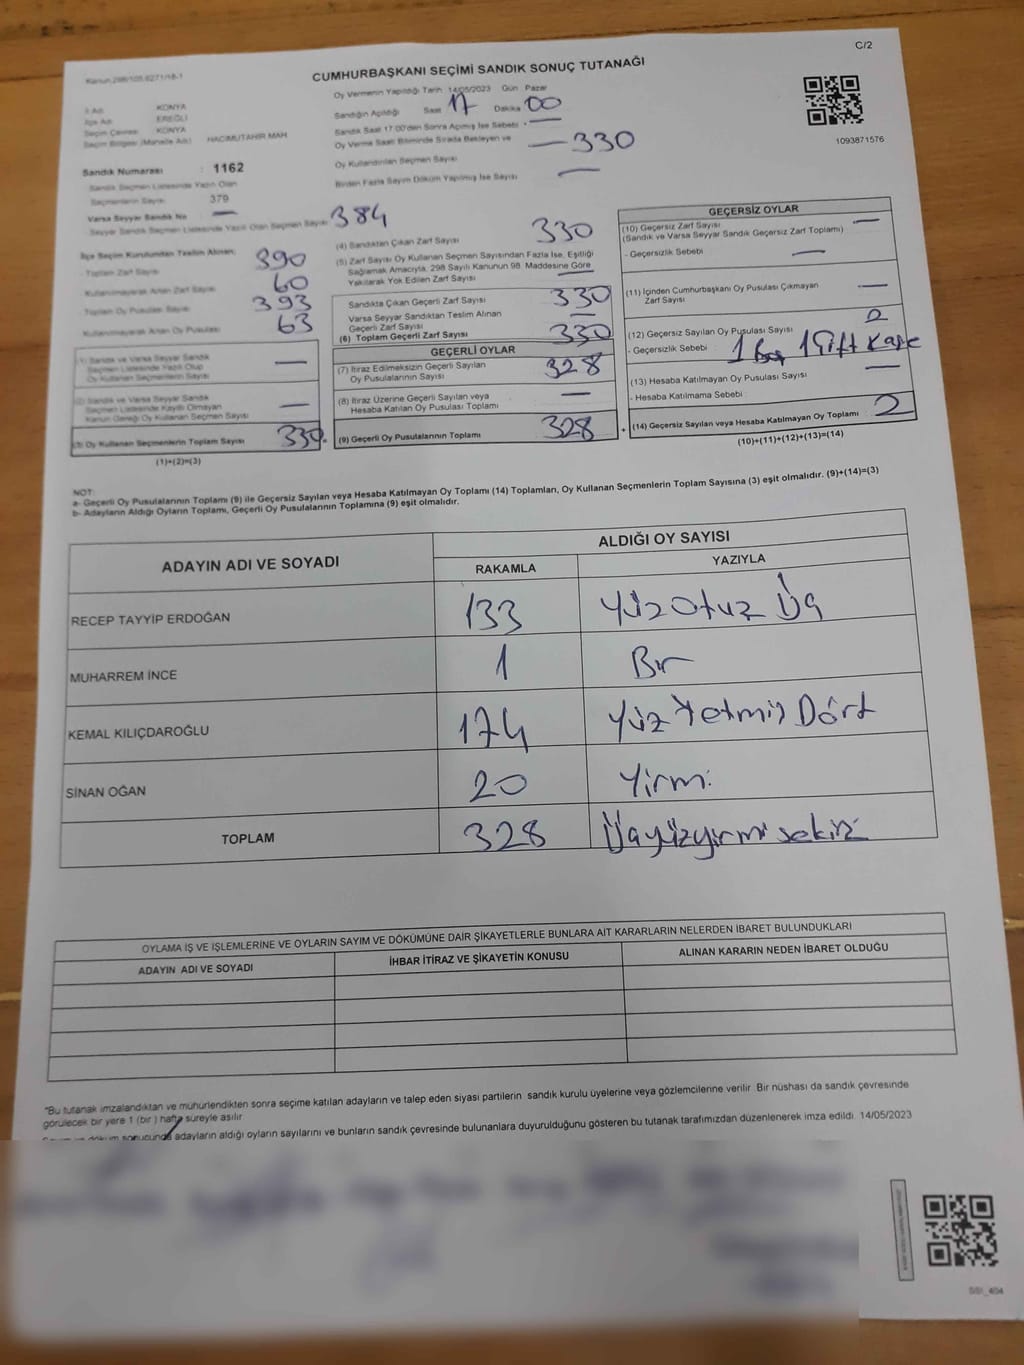 C/2
Kanun 298/105,6271/18-1
CUMHURBAŞKANI SEÇİMİ SANDIK SONUÇ TUTANAĞI
Oy Vermenin Yapıldığı Tarih 14/05/2023 Gün Pazar
İl Adı KONYA
İlçe Adı EREĞLİ
Seçim Çevresi KONYA
Seçim Bölgesi (Mahalle Adı) HACIMUTAHİR MAH
Sandığın Açıldığı Saat 17 Dakika 00
Sandık Saat 17:00'den Sonra Açılmış İse Sebebi -
Oy Verme Saati Bitiminde Sırada Bekleyen ve
Oy Kullandırılan Seçmen Sayısı
— 330
Birden Fazla Sayım Döküm Yapılmış İse Sayısı —
1093871576
Sandık Numarası : 1162
Sandık Seçmen Listesinde Yazılı Olan
Seçmenlerin Sayısı 379
Varsa Seyyar Sandık No —
Seyyar Sandık Seçmen Listesinde Yazılı Olan Seçmen Sayısı 384
İlçe Seçim Kurulundan Teslim Alınan;
- Toplam Zarf Sayısı 390
Kullanılmayarak Artan Zarf Sayısı 60
Toplam Oy Pusulası Sayısı 393
Kullanılmayarak Artan Oy Pusulası 63
(1) Sandık ve Varsa Seyyar Sandık
Seçmen Listesinde Yazılı Olup
Oy Kullanan Seçmenlerin Sayısı —
(2) Sandık ve Varsa Seyyar Sandık
Seçmen Listesinde Kayıtlı Olmayan
Kanun Gereği Oy Kullanan Seçmen Sayısı —
(3) Oy Kullanan Seçmenlerin Toplam Sayısı 330
(1)+(2)=(3)
(4) Sandıktan Çıkan Zarf Sayısı 330
(5) Zarf Sayısı Oy Kullanan Seçmen Sayısından Fazla İse, Eşitliği
Sağlamak Amacıyla, 298 Sayılı Kanunun 98. Maddesine Göre
Yakılarak Yok Edilen Zarf Sayısı —
Sandıkta Çıkan Geçerli Zarf Sayısı 330
Varsa Seyyar Sandıktan Teslim Alınan
Geçerli Zarf Sayısı —
(6) Toplam Geçerli Zarf Sayısı 330
GEÇERLİ OYLAR
(7) İtiraz Edilmeksizin Geçerli Sayılan
Oy Pusulalarının Sayısı 328
(8) İtiraz Üzerine Geçerli Sayılan veya
Hesaba Katılan Oy Pusulası Toplamı —
(9) Geçerli Oy Pusulalarının Toplamı 328
GEÇERSİZ OYLAR
(10) Geçersiz Zarf Sayısı —
(Sandık ve Varsa Seyyar Sandık Geçersiz Zarf Toplamı)
- Geçersizlik Sebebi —
(11) İçinden Cumhurbaşkanı Oy Pusulası Çıkmayan
Zarf Sayısı —
(12) Geçersiz Sayılan Oy Pusulası Sayısı 2
- Geçersizlik Sebebi 1 Boş 1 Çift Kaşe
(13) Hesaba Katılmayan Oy Pusulası Sayısı —
- Hesaba Katılmama Sebebi
+ (14) Geçersiz Sayılan veya Hesaba Katılmayan Oy Toplamı 2
(10)+(11)+(12)+(13)=(14)
NOT:
a- Geçerli Oy Pusulalarının Toplamı (9) ile Geçersiz Sayılan veya Hesaba Katılmayan Oy Toplamı (14) Toplamları, Oy Kullanan Seçmenlerin Toplam Sayısına (3) eşit olmalıdır. (9)+(14)=(3)
b- Adayların Aldığı Oyların Toplamı, Geçerli Oy Pusulalarının Toplamına (9) eşit olmalıdır.
ADAYIN ADI VE SOYADI
ALDIĞI OY SAYISI
RAKAMLA YAZIYLA
RECEP TAYYİP ERDOĞAN 133 Yüz Otuz Üç
MUHARREM İNCE 1 Bir
KEMAL KILIÇDAROĞLU 174 Yüz Yetmiş Dört
SİNAN OĞAN 20 Yirmi
TOPLAM 328 Üçyüzyirmisekiz
OYLAMA İŞ VE İŞLEMLERİNE VE OYLARIN SAYIM VE DÖKÜMÜNE DAİR ŞİKAYETLERLE BUNLARA AİT KARARLARIN NELERDEN İBARET BULUNDUKLARI
ADAYIN ADI VE SOYADI İHBAR İTİRAZ VE ŞİKAYETİN KONUSU ALINAN KARARIN NEDEN İBARET OLDUĞU
"Bu tutanak imzalandıktan ve mühürlendikten sonra seçime katılan adayların ve talep eden siyasi partilerin sandık kurulu üyelerine veya gözlemcilerine verilir. Bir nüshası da sandık çevresinde
görülecek bir yere 1 (bir ) hafta süreyle asılır.
Sayım ve döküm sonucunda adayların aldığı oyların sayılarını ve bunların sandık çevresinde bulunanlara duyurulduğunu gösteren bu tutanak tarafımızdan düzenlenerek imza edildi. 14/05/2023